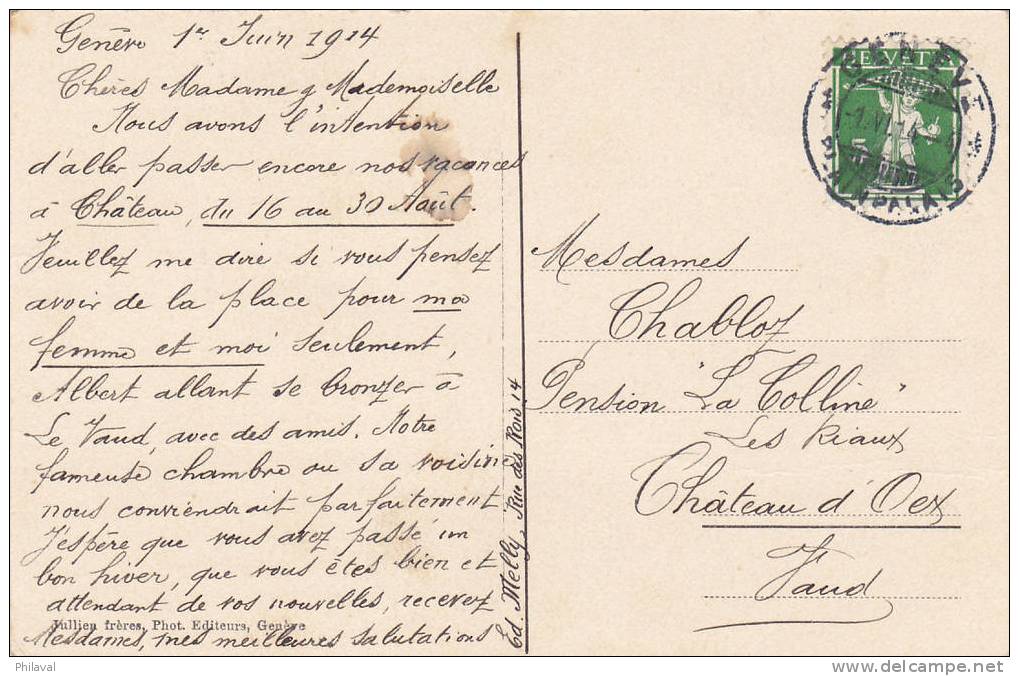 Genève 1er Juin 1914
Chères Madame & Mademoiselle
Nous avons l'intention
d'aller passer encore nos vacances
à Château, du 16 au 30 Août.
Veuillez me dire si vous pensez
avoir de la place pour ma
femme et moi seulement,
Albert allant se bronzer à
Le Vaud, avec des amis. Notre
fameuse chambre ou sa voisine
nous conviendrait parfaitement
J'espère que vous avez passé un
bon hiver, que vous êtes bien et
attendant de vos nouvelles, recevez
Mesdames, mes meilleures salutations
Ed. Melly, Rue des Rois 14
Jullien frères, Phot. Editeurs, Genève
HELVETIA
5
GENÈVE 1
-1.VI.14-4
PLAINPALAIS
Mesdames
Chabloz
Pension "La Colline"
Les Riaux
Château d'Oex
Vaud
Philaval
delcampe.net